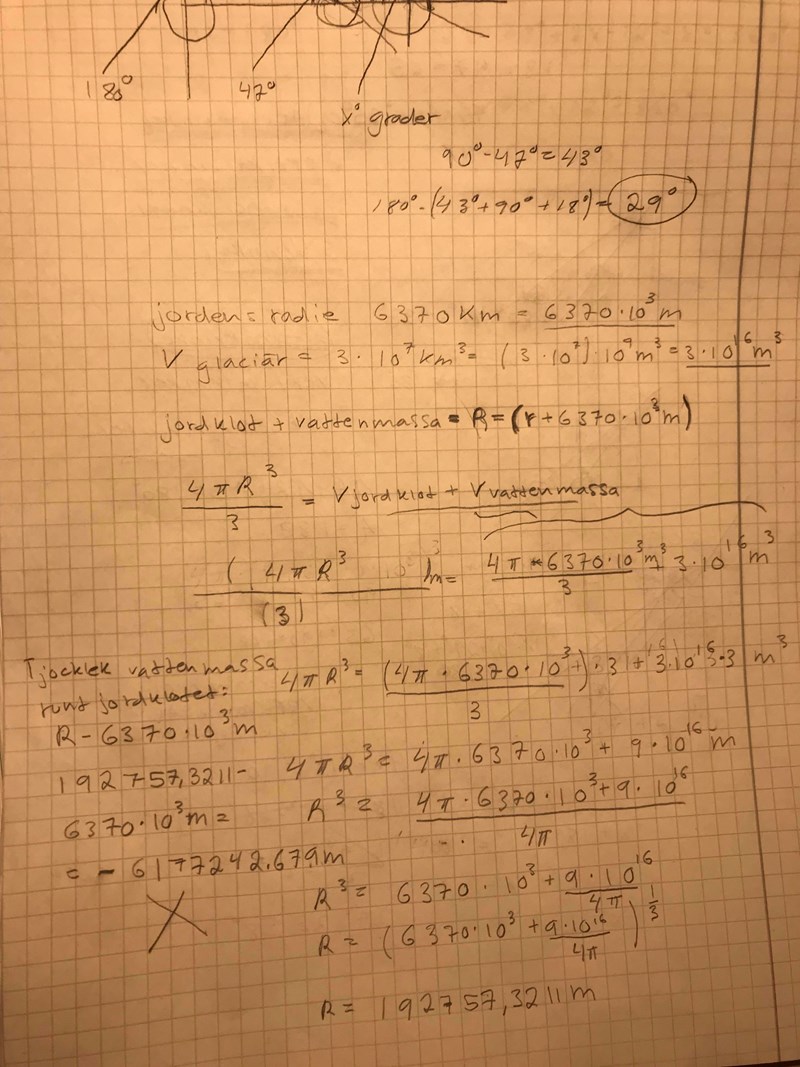 180°
47°
x° grader
90°-47°=43°
180°-(43°+90°+18°)=29°
jordens radie 6370 km = 6370·10³ m
V glaciär = 3·10⁷ km³ = (3·10⁷)·10⁹ m³ = 3·10¹⁶ m³
jordklot + vattenmassa = R = (r+6370·10³m)
4πR³/3 = Vjordklot + Vvattenmassa
(4πR³/(3) = 4π·6370·10³m³/3 + 3·10¹⁶ m³
Tjocklek vattenmassa
runt jordklotet:
R-6370·10³m
192757,3211-
6370·10³m=
= -6177242,679m
4πR³= (4π·6370·10³+)/3·3+3·10¹⁶·3 m³
4πR³= 4π·6370·10³+ 9·10¹⁶ m
R³= 4π·6370·10³+9·10¹⁶/4π
R³= 6370·10³+9·10¹⁶/4π
R= (6370·10³+9·10¹⁶/4π)^1/3
R= 192757,3211m